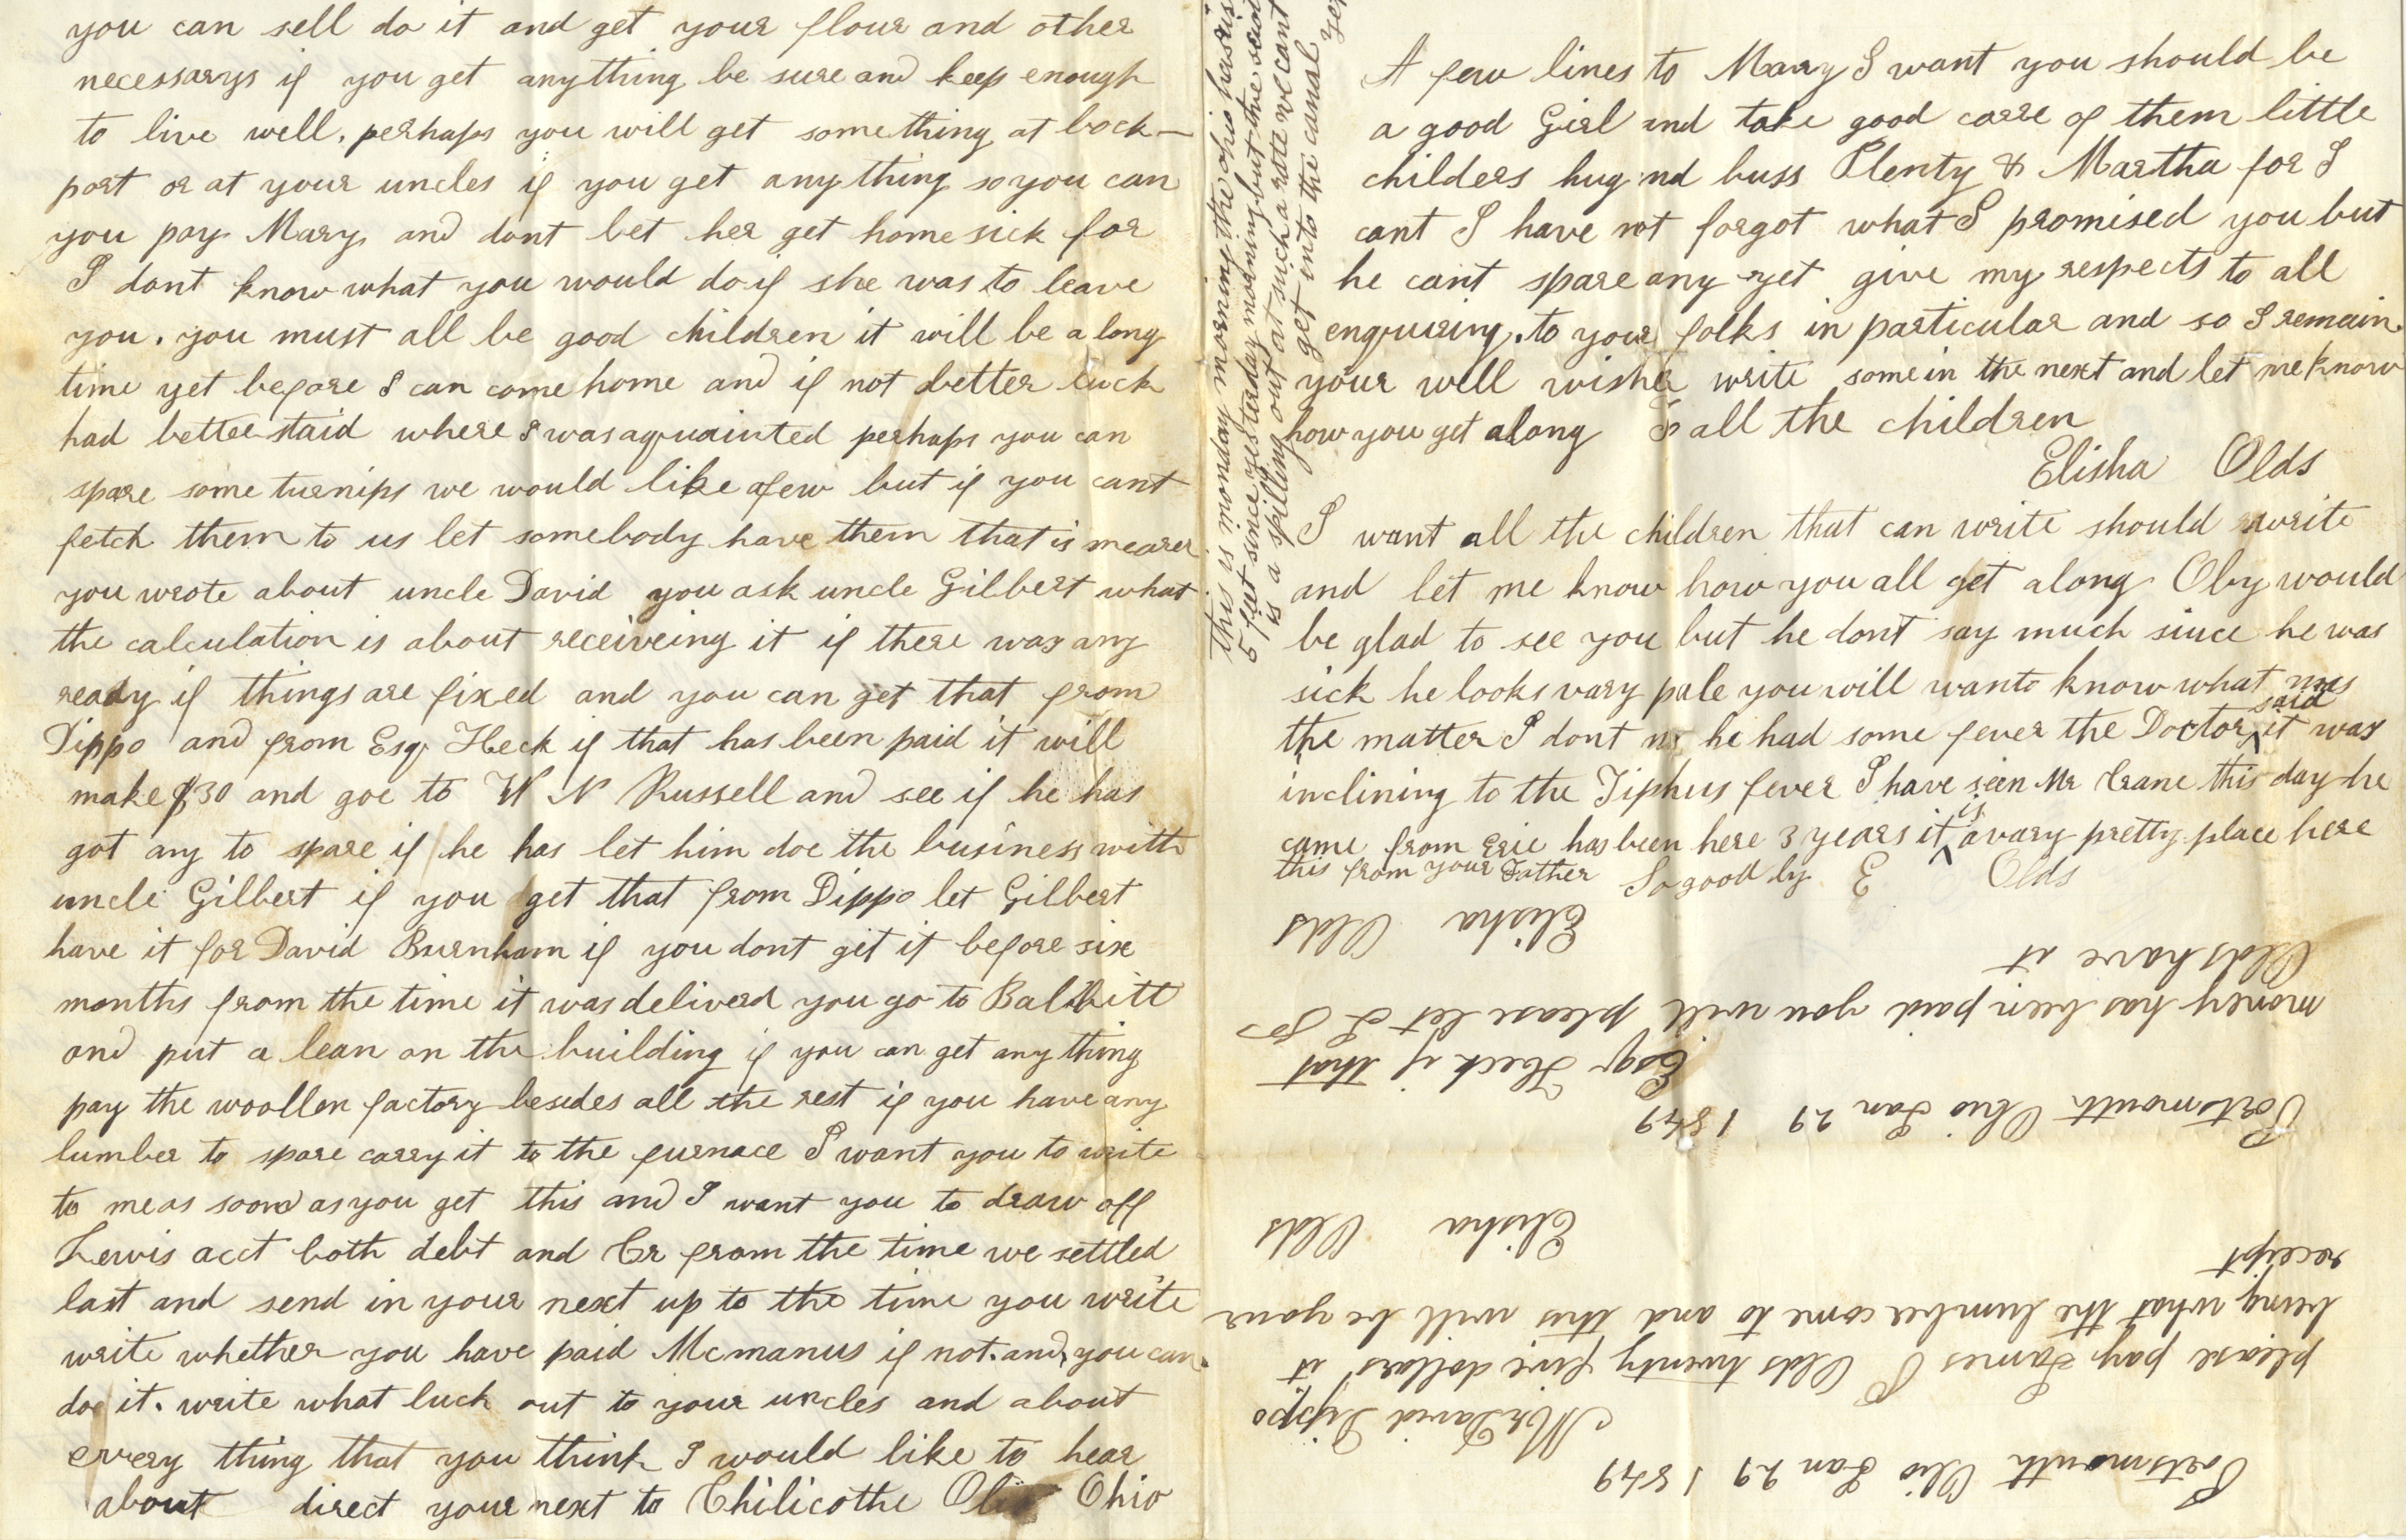 you can sell do it and get your flour and other
necessarys if you get anything be sure and keep enough
to live well. perhaps you will get something at lock-
port or at your uncles if you get any thing so you can
you pay Mary and dont let her get home sick for
I dont know what you would do if she was to leave
you. you must all be good children it will be a long
time yet before I can come home and if not better luck
had better staid where I was aquainted perhaps you can
spare some turnips we would like a few but if you cant
fetch them to us let somebody have them that is nearer
you wrote about uncle David you ask uncle Gilbert what
the calculation is about receiveing it if there was any
ready if things are fixed and you can get that from
Dippo and from Esqr Heck if that has been paid it will
make $30 and goe to W N Russell and see if he has
got any to spare if he has let him doe the business with
uncle Gilbert if you get that from Dippo let Gilbert
have it for David Burnham if you dont git it before six
months from the time it was deliverd you go to Balbbitt
and put a lean on the building if you can get any thing
pay the woollen factory besides all the rest if you have any
lumber to spare carry it to the furnace I want you to write
to me as soon as you get this and I want you to draw off
Lewis acct both debt and Cr from the time we settled
last and send in your next up to the time you write
write whether you have paid Mcmanus if not. and you can
doe it. write what luck out to your uncles and about
every thing that you think I would like to hear
about direct your next to Chilicothe Ohio
this is monday morning the ohio has ris
5 feet since yesterday morning but the
is a spilling out at such a rate we cant
get into the canal yet
A few lines to Mary I want you should be
a good Girl and take good care of them little
childers hug nd buss Plenty & Martha for I
cant I have not forgot what I promised you but
he cant spare any yet give my respects to all
enquiring. to your folks in particular and so I remain
your well wisher write some in the next and let me know
how you get along & all the children
Elisha Olds
I want all the children that can write should write
and let me know how you all get along Oby would
be glad to see you but he dont say much since he was
sick he looks vary pale you will wanto know what was
the matter I dont no he had some fever the Doctor said it was
inclining to the Tiphus fever I have seen Mr Crane this day he
came from Erie has been here 3 years it is a vary pretty place here
this from your Father So good by E Olds
Portsmouth Ohio Jan 29 1849
Mr David Dippo
please pay James P Olds twenty five dollars it
being what the lumber come to and this will be your
receipt
Elisha Olds
Portsmouth Ohio Jan 29 1849
Esqr Heck if that
money has been paid you will please let J P
Olds have it
Elisha Olds